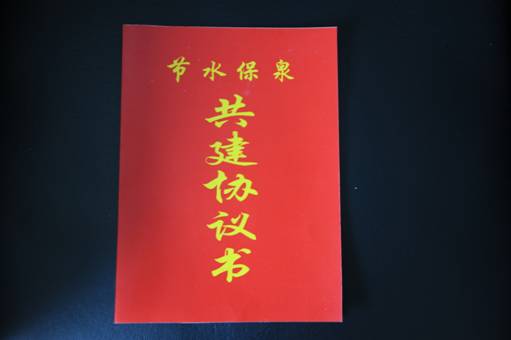 节水保泉
共建协议书